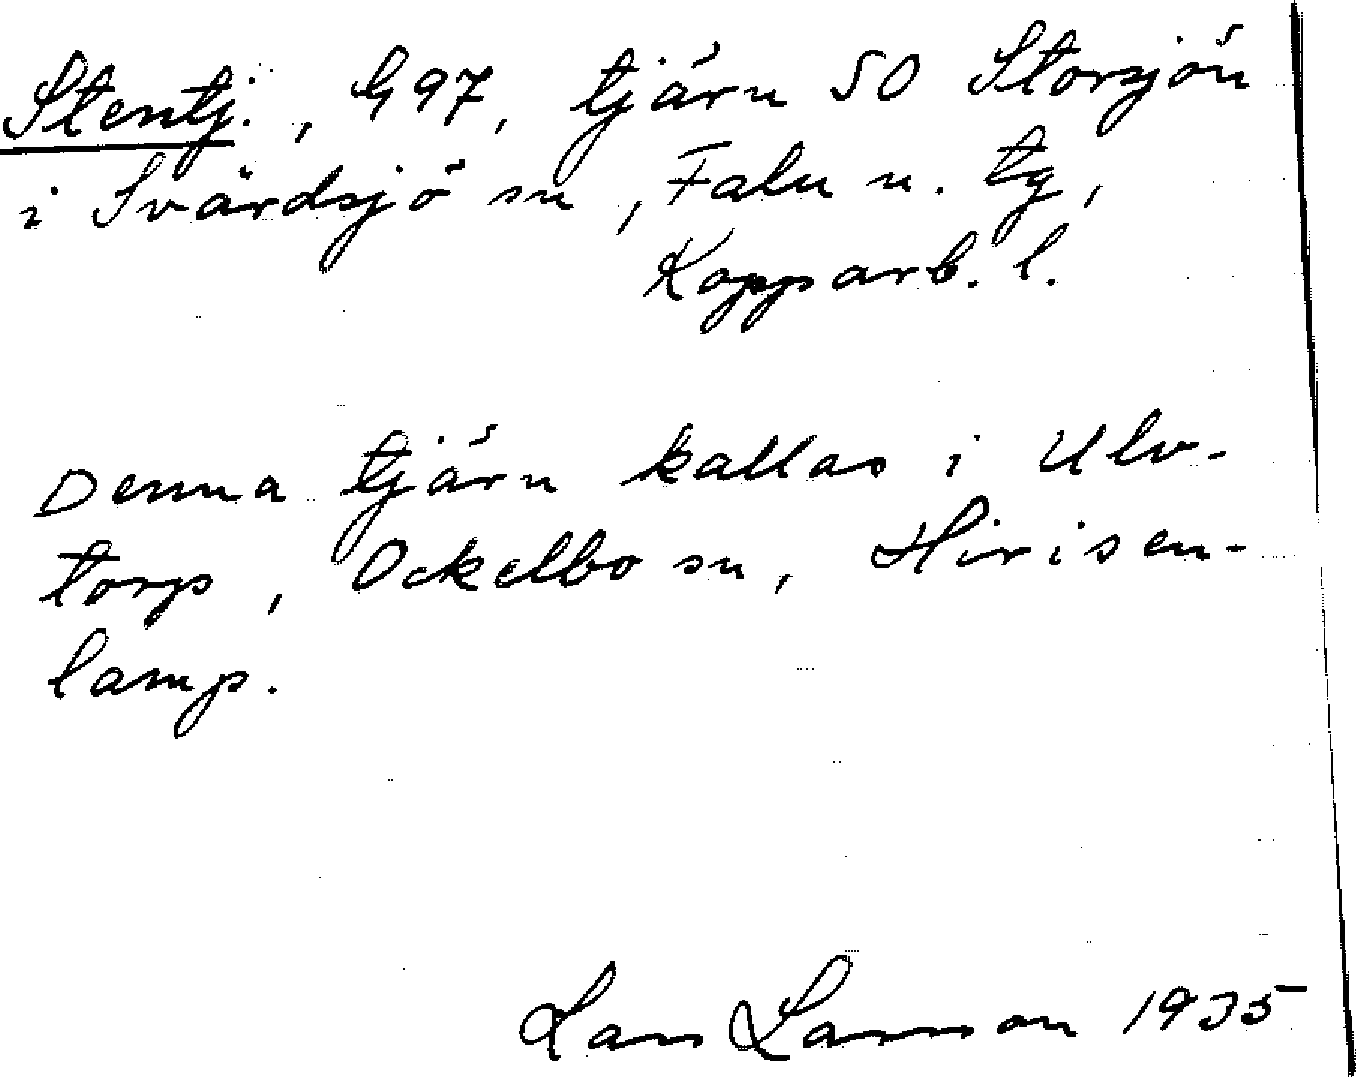 Stentj., G97, tjärn SO Storsjön
i Svärdsjö sn, Falu n. tg,
Kopparb. l.
Denna tjärn kallas i Ulv-
torp, Ockelbo sn, Hirisen-
lamp.
Lars Larsson 1935